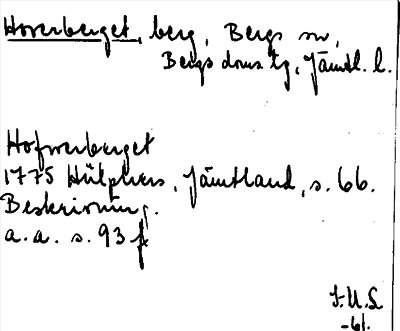 Hoverberget, berg, Bergs sn,
Bergs doms tg, Jämtl. l.
Hofwerberget
1775 Hülphers, Jämtland, s. 66.
Beskrivning.
a. a. s. 93 f
-61.